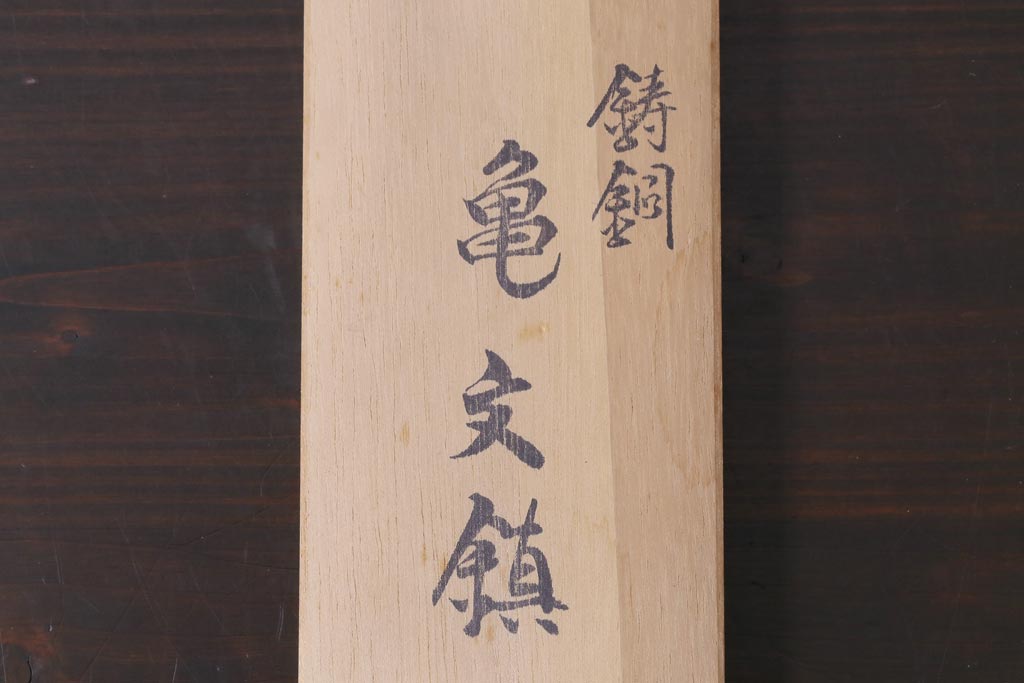 鋳銅
亀文鎮